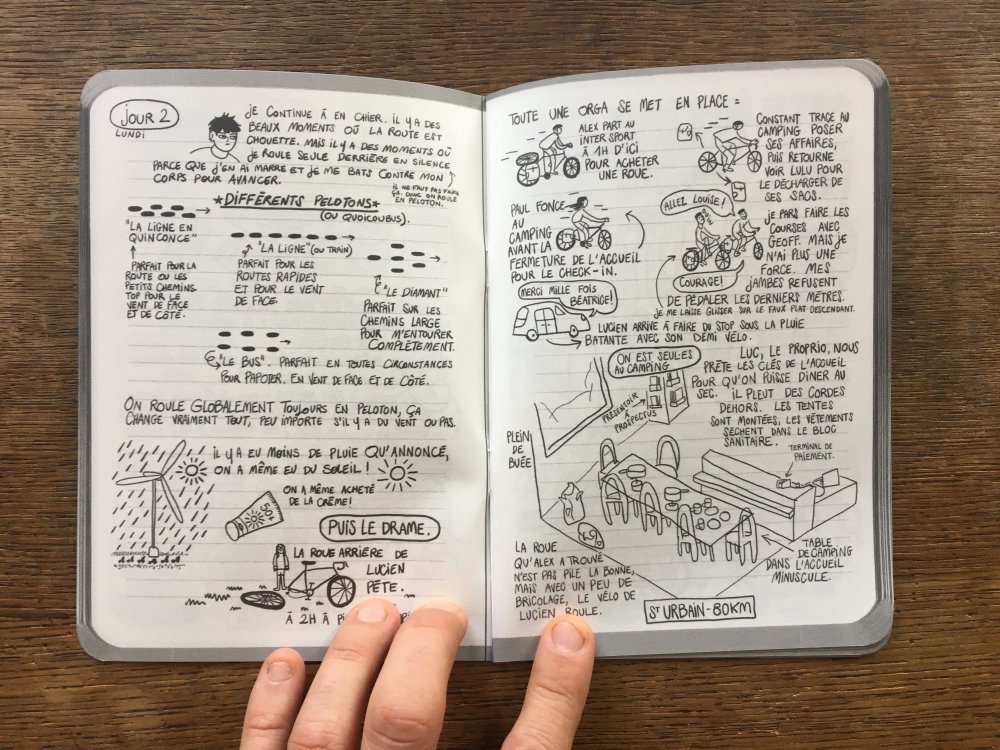 JOUR 2
LUNDI
JE CONTINUE À EN CHIER. IL Y A DES
BEAUX MOMENTS OÙ LA ROUTE EST
CHOUETTE. MAIS IL Y A DES MOMENTS OÙ
JE ROULE SEULE DERRIÈRE EN SILENCE
PARCE QUE J'EN AI MARRE ET JE ME BATS CONTRE MON
CORPS POUR AVANCER.
IL NE FAUT PAS FAIRE
ÇA. DONC ON ROULE
EN PELOTON.
*DIFFÉRENTS PELOTONS*
(OU QUOICOUBUS).
"LA LIGNE EN
QUINCONCE"
PARFAIT POUR LA
ROUTE OU LES
PETITS CHEMINS.
TOP POUR LE
VENT DE FACE
ET DE CÔTÉ.
"LA LIGNE" (OU TRAIN)
PARFAIT POUR LES
ROUTES RAPIDES
ET POUR LE VENT
DE FACE.
"LE DIAMANT"
PARFAIT SUR LES
CHEMINS LARGE
POUR M'ENTOURER
COMPLÈTEMENT.
"LE BUS". PARFAIT EN TOUTES CIRCONSTANCES
POUR PAPOTER. EN VENT DE FACE ET DE CÔTÉ.
ON ROULE GLOBALEMENT TOUJOURS EN PELOTON, ÇA
CHANGE VRAIMENT TOUT, PEU IMPORTE S'IL Y A DU VENT OU PAS.
IL Y A EU MOINS DE PLUIE QU'ANNONCÉ,
ON A MÊME EU DU SOLEIL !
ON A MÊME ACHETÉ
DE LA CRÈME!
50+
PUIS LE DRAME.
LA ROUE ARRIÈRE DE
LUCIEN
PÈTE.
À 2H À
TOUTE UNE ORGA SE MET EN PLACE :
ALEX PART AU
INTERSPORT
À 1H D'ICI
POUR ACHETER
UNE ROUE.
CONSTANT TRACE AU
CAMPING POSER
SES AFFAIRES,
PUIS RETOURNE
VOIR LULU POUR
LE DÉCHARGER DE
SES SACS.
PAUL FONCE
AU
CAMPING
AVANT LA
FERMETURE DE L'ACCUEIL
POUR LE CHECK-IN.
ALLEZ LOUISE!
COURAGE!
JE PARS FAIRE LES
COURSES AVEC
GEOFF. MAIS JE
N'AI PLUS UNE
FORCE. MES
JAMBES REFUSENT
DE PÉDALER LES DERNIERS MÈTRES.
JE ME LAISSE GLISSER SUR LE FAUX PLAT DESCENDANT.
MERCI MILLE FOIS
BÉATRICE!
LUCIEN ARRIVE À FAIRE DU STOP SOUS LA PLUIE
BATANTE AVEC SON DEMI VÉLO.
ON EST SEUL·ES
AU CAMPING
LUC, LE PROPRIO, NOUS
PRÊTE LES CLÉS DE L'ACCUEIL
POUR QU'ON PUISSE DINER AU
SEC. IL PLEUT DES CORDES
DEHORS. LES TENTES
SONT MONTÉES, LES VÊTEMENTS
SÈCHENT DANS LE BLOC
SANITAIRE.
PRÉSENTOIR
À
PROSPECTUS
PLEIN
DE
BUÉE
TERMINAL DE
PAIEMENT.
TABLE
DE CAMPING
DANS L'ACCUEIL
MINUSCULE.
LA ROUE
QU'ALEX A TROUVÉ
N'EST PAS PILE LA BONNE,
MAIS AVEC UN PEU DE
BRICOLAGE, LE VÉLO DE
LUCIEN ROULE.
ST URBAIN - 80KM